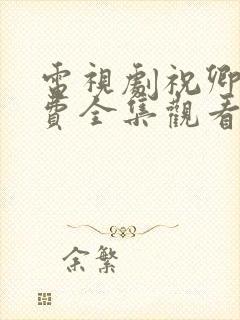 電視劇祝卿
費全集觀看
余繁